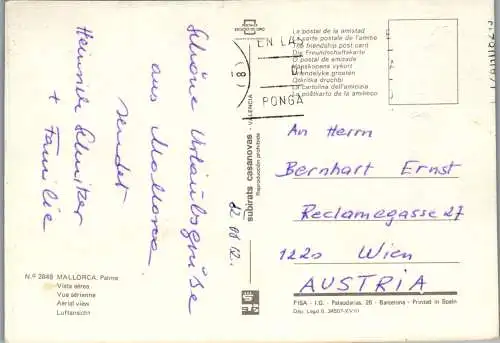 Schöne Urlaubsgrüße
aus Mallorca
sendet
Heinrich
+ Familie
N.º 2849 MALLORCA. Palma
Vista aérea
Vue aérienne
Aerial view
Luftansicht
subirats casanovas - VALENCIA
Reproducción prohibida
La postal de la amistad
La carte postale de l'amitié
The friendship post card
Die Freundschaftskarte
O postal de amizade
Vriendelyke groeten
Otkritka druchbi
La cartolina dell'amicizia
La poŝtkarto de la amikeco
EN LAS
PONGA
An Herrn
Bernhart Ernst
Reclamegasse 27
1220 Wien
AUSTRIA
FISA - I.G. - Palaudarias, 26 - Barcelona - Printed in Spain